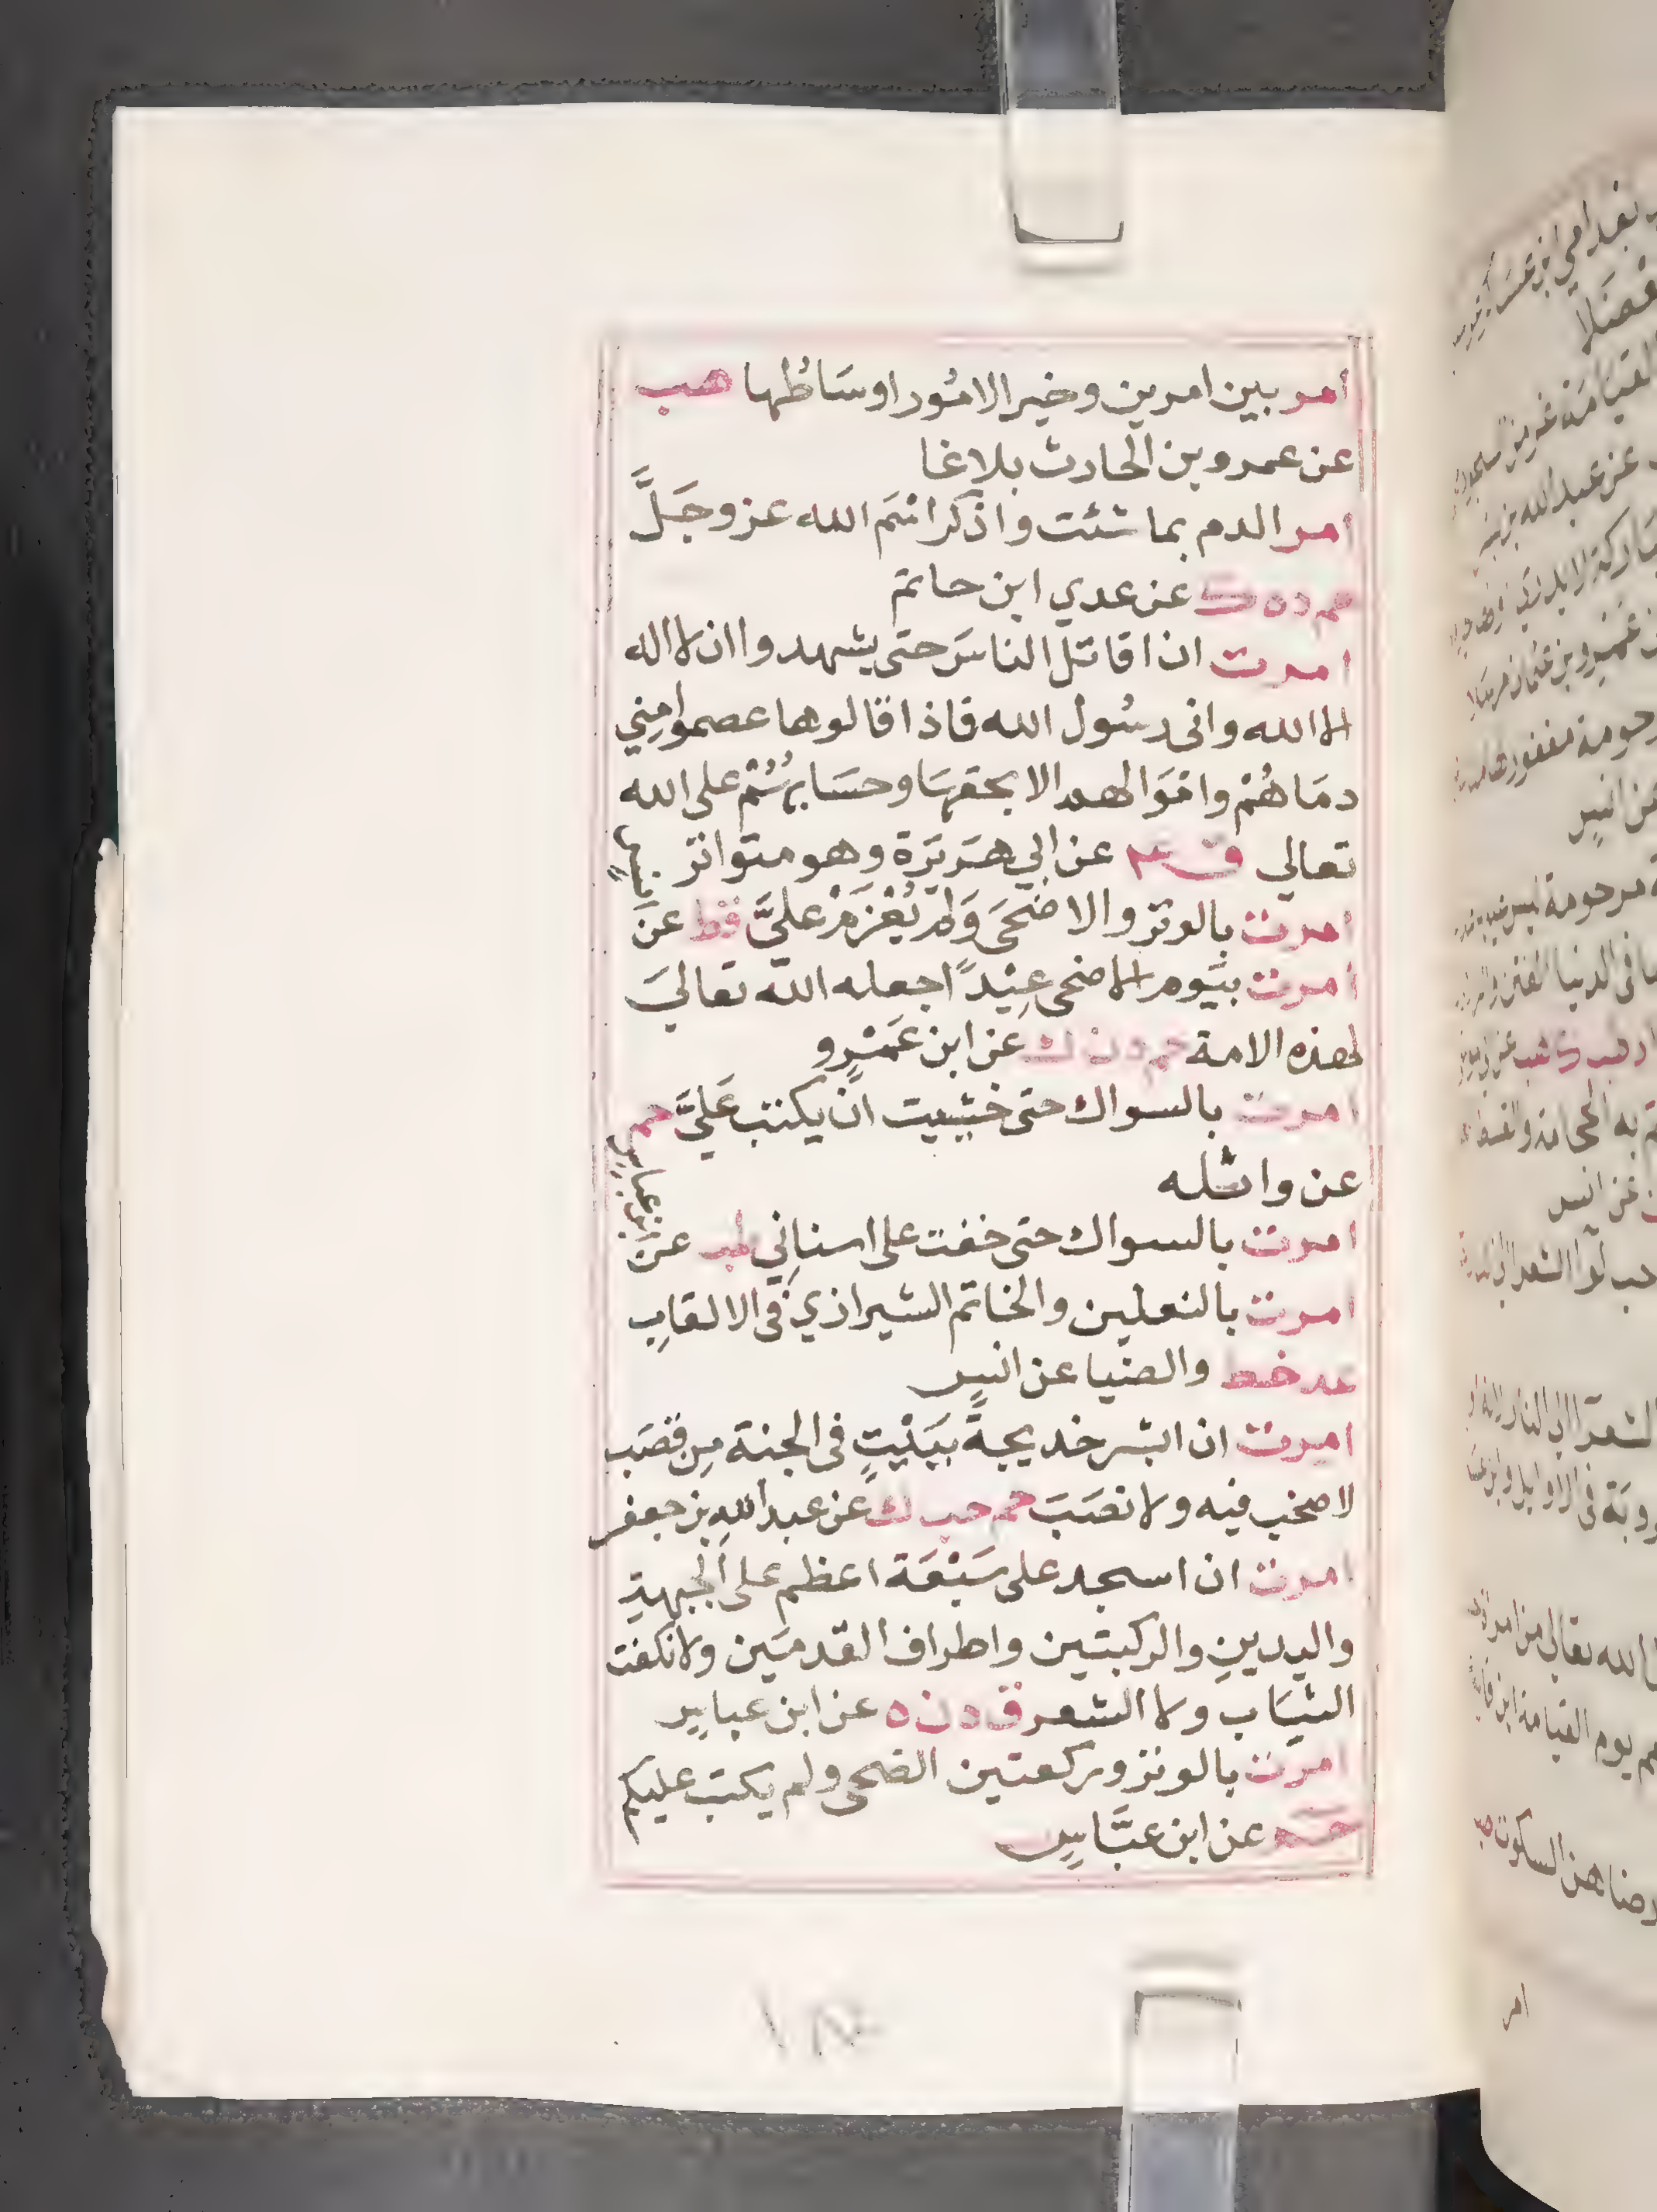 امر بين امرين وخير الامُور اوسَاطُها هب
عن عمرو بن الحارث بلاغا
امر الدم بما شئت واذكر اسْمَ الله عز وجَلَّ
حم د ه ك عن عدي ابن حاتم
امرت ان اقاتل الناسَ حتى يشهدوا ان لا اله
الا الله واني رسُول الله فاذا قالوها عصموا مِني
دمَاهُمْ وامَوَالهم الا بحقهَا وحسَابهُمْ على الله
تعالي ق عم عن ابي هَرَيْرَة وهو متواتر
امرت بالوتر والاضحَى وَلم يُعْزَمْ عليَّ قط عن
امرت بيَوم الاضحى عِيْدًا جعله الله تعاليَ
لهذه الامة حم د ن ك عن ابن عَمْرٍو
امرت بالسواك حتى خشيت ان يكتب عَليَّ حم
عن واثله
امرت بالسواك حتى خفت على اسناني طب عن
ابن عباسٍ
امرت بالنعلين والخاتم الشيرازي في الالقابِ
عد خط والضيا عن انسٍ
امرت ان ابشر خديجةَ ببَيْتٍ في الجنة مِن قصَب
لا صخب فيه ولا نصَبَ حم حب ك عن عبد اللهِ بن جعفر
امرت ان اسجد على سَبْعَة اعظم على الجبهةِ
واليدينِ والركبتين واطراف القدمَين ولا نكفت
الثيَاب ولا الشعر ق د ن ه عن ابن عباسٍ
امرت بالوتر وركعتين الضحى ولم يكتب عليكم
حم عن ابن عبَّاسٍ